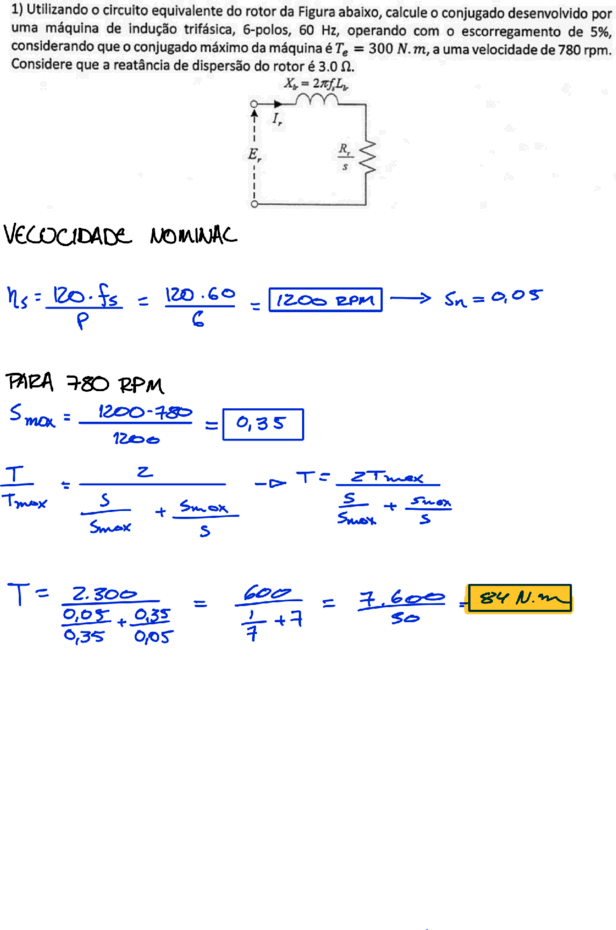 1) Utilizando o circuito equivalente do rotor da Figura abaixo, calcule o conjugado desenvolvido por
uma máquina de indução trifásica, 6-polos, 60 Hz, operando com o escorregamento de 5%,
considerando que o conjugado máximo da máquina é Te = 300 N.m, a uma velocidade de 780 rpm.
Considere que a reatância de dispersão do rotor é 3.0 Ω.
Xlr = 2πfsLlr
Ir
Er
Rr/s
VELOCIDADE NOMINAL
ηs = 120.fs/P = 120.60/6 = 1200 RPM → Sn = 0,05
PARA 780 RPM
Smax = 1200-780/1200 = 0,35
T/Tmax = 2/(S/Smax + Smax/S) → T = 2Tmax/(S/Smax + Smax/S)
T = 2.300/(0,05/0,35 + 0,35/0,05) = 600/(1/7 + 7) = 7.600/50 = 84 N.m